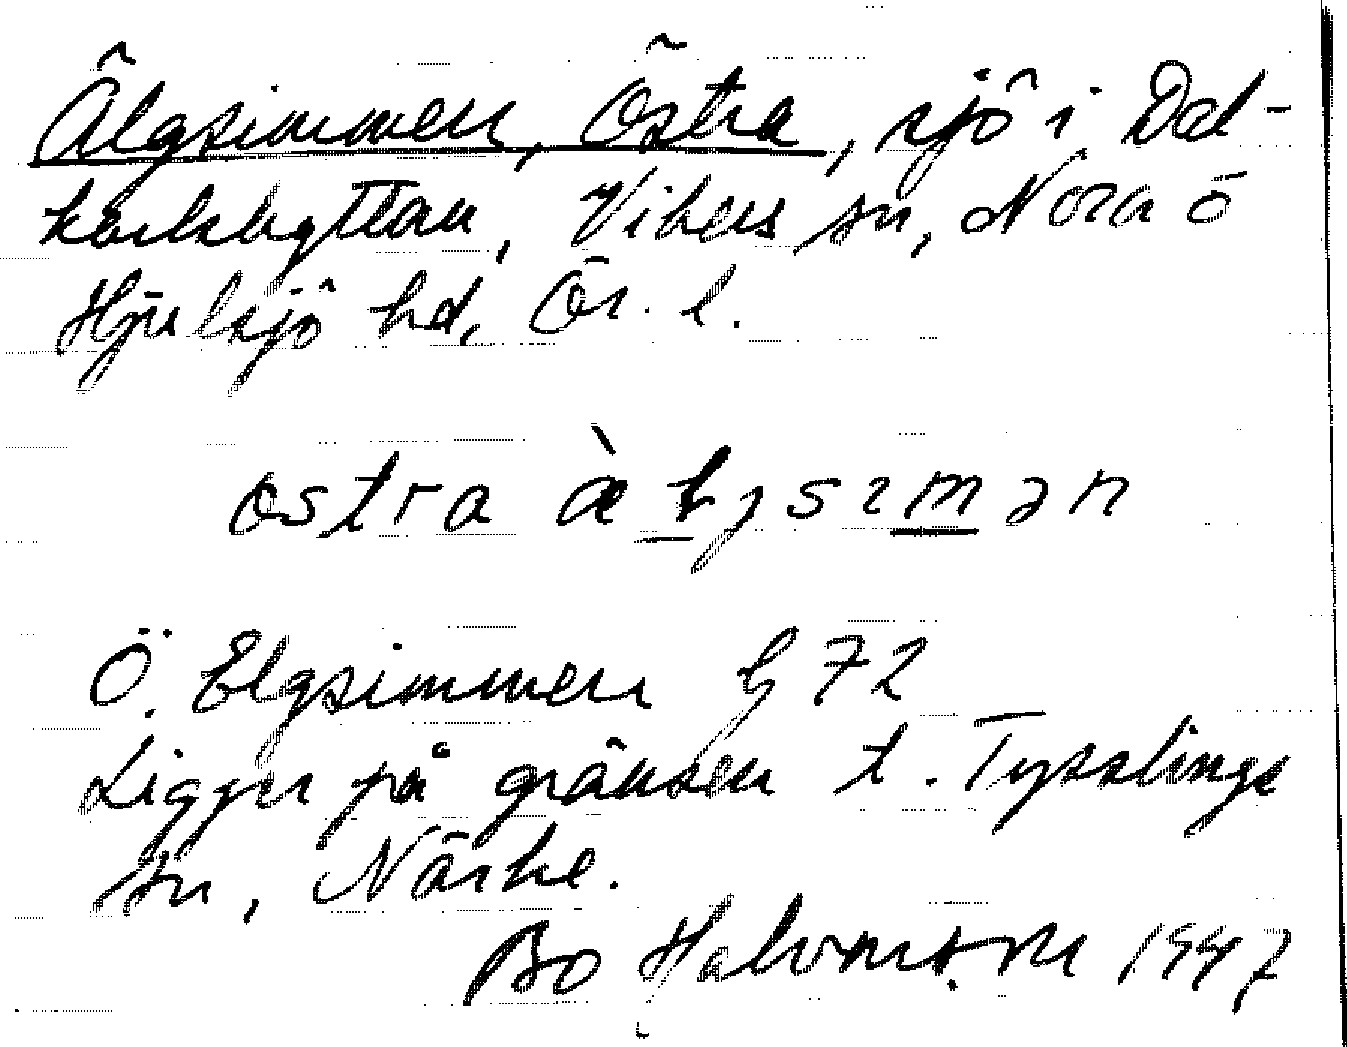 Älgsimmen, Östra, sjö i Dal-
karlshyttan, Vikers sn, Nora o
Hjulsjö hd, Ör. l.
ostra æ̀ɫjsimən
Ö. Elgsimmen G 72
Ligger på gränsen t. Tysslinge
sn, Närke.
Bo Halvarson 1947